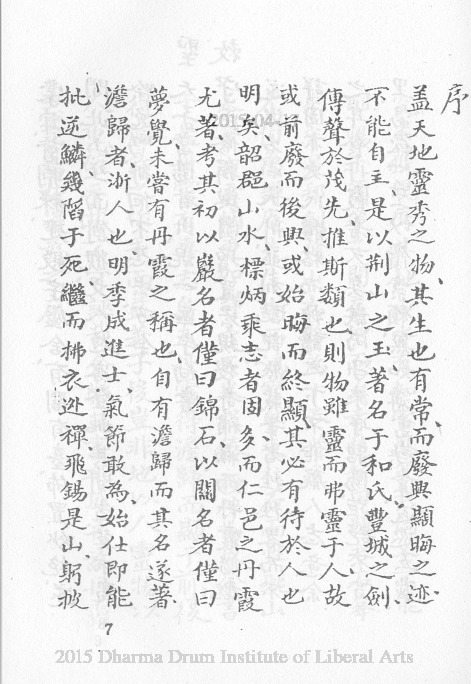 序
蓋天地靈秀之物、其生也有常、而廢興顯晦之迹、
不能自主、是以荆山之玉、著名于和氏、豐城之劍、
傳聲於茂先、推斯類也、則物雖靈而弗靈于人、故
或前廢而後興、或始晦而終顯、其必有待於人也
明矣、韶郡山水、標炳乘志者固多、而仁邑之丹霞
尤著、考其初以巖名者僅曰錦石、以關名者僅曰
夢覺、未嘗有丹霞之稱也、自有澹歸而其名遂著、
澹歸者、浙人也、明季成進士、氣節敢為、始仕即能
批逆鱗、幾陷于死、繼而拂衣逃禪、飛錫是山、躬披
7
2015 Dharma Drum Institute of Liberal Arts